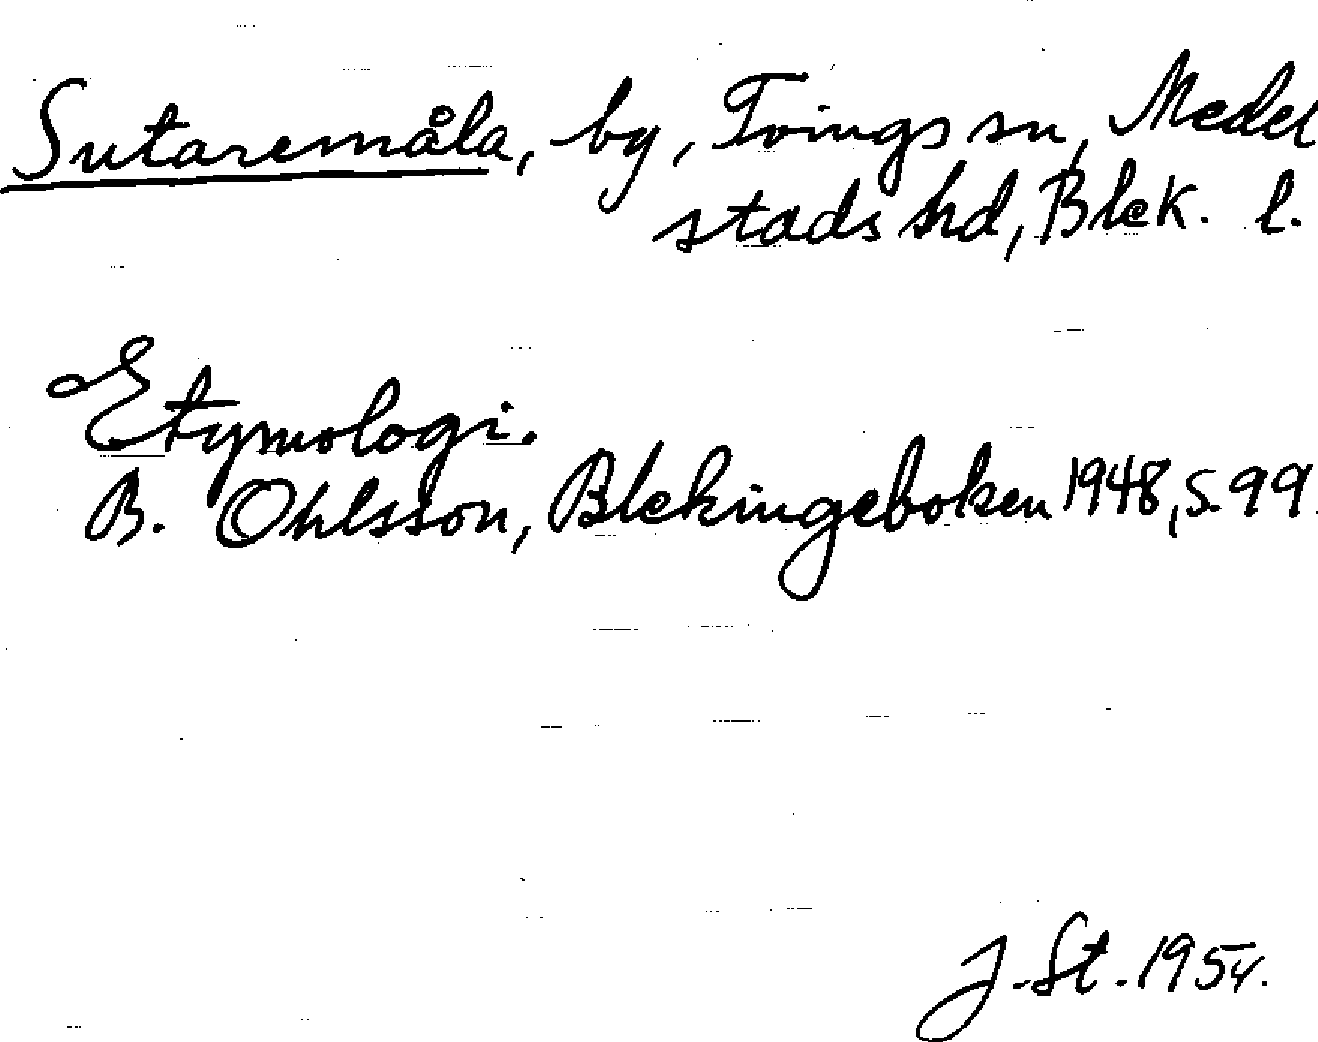 Sutaremåla, by, Tvings sn, Medel
stads hd, Blek. l.
Etymologi.
B. Ohlsson, Blekingeboken 1948, s. 99.
J. St. 1954.